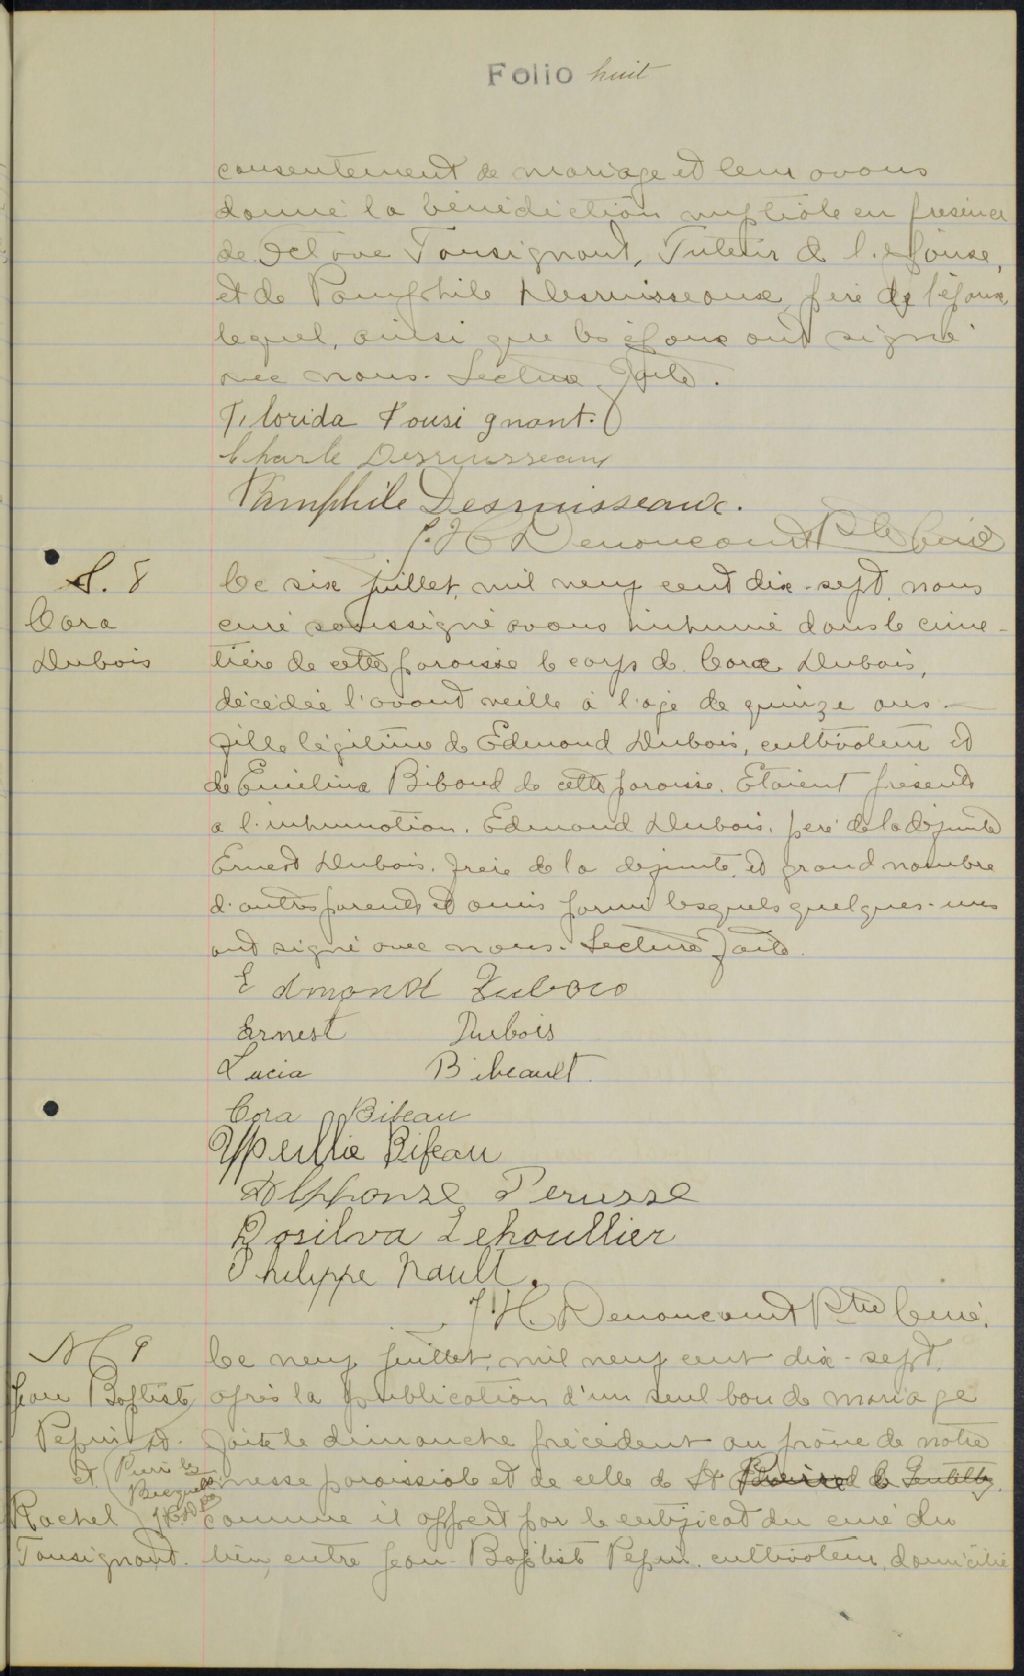 Folio huit
consentement de mariage et leur avons
donné la bénédiction nuptiale en présence
de Octave Tousignant, Tuteur de l'épouse,
et de Pamphile Desruisseaux père de l'époux,
lequel, ainsi que les époux ont signé
avec nous. Lecture faite.
Florida Tousignant.
Charle Desruisseaux
Pamphile Desruisseaux.
J. H. Denoncourt Ptre Curé
S. 8
Cora
Dubois
Le six juillet, mil neuf cent dix-sept, nous
curé soussigné avons inhumé dans le cime-
tière de cette paroisse le corps de Cora Dubois,
décédée l'avant veille à l'age de quinze ans.
fille légitime de Edmond Dubois, cultivateur et
de Emilina Bibaud de cette paroisse. Etaient présents
a l'inhumation. Edmond Dubois, père de la défunte
Ernest Dubois, frère de la défunte, et grand nombre
d'autres parents et amis parmi lesquels quelques-uns
ont signé avec nous. Lecture faite.
Edmond Dubois
Ernest Dubois
Lucia Bibeault.
Cora Bibeau
Bibeau
Alphonse Perusse
Dosilva Lehoullier
Philippe Nault.
J. H. Denoncourt Ptre Curé.
M 9
Jean Baptiste
Pepin
et
Rachel
Tousignant.
Pierre les
Becquets
JHD
Le neuf juillet, mil neuf cent dix-sept,
après la publication d'un seul ban de mariage
faite le dimanche précédent au prône de notre
messe paroissiale et de celle de St de Gentilly
comme il appert par le certificat du curé du
lieu, entre Jean-Baptiste Pepin, cultivateur, domicilié